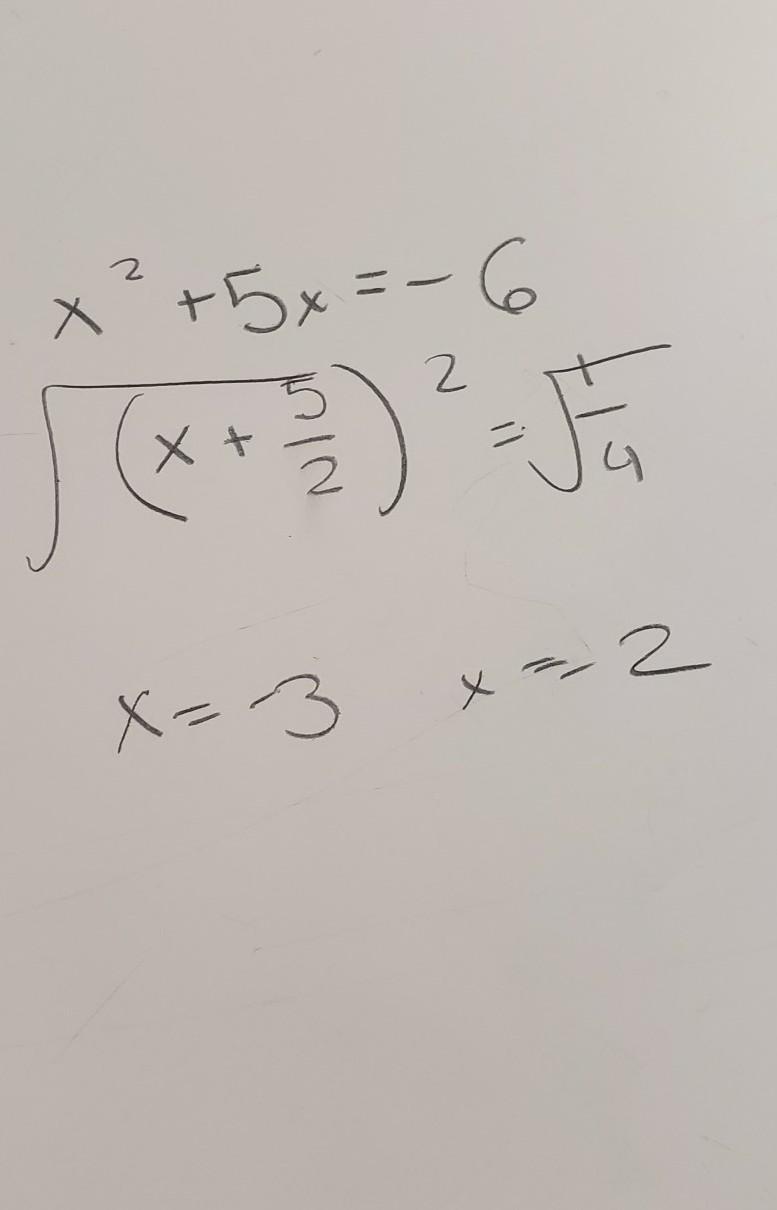 x² + 5x = - 6
√(x + 5/2)² = √1/4
x = -3 x = -2